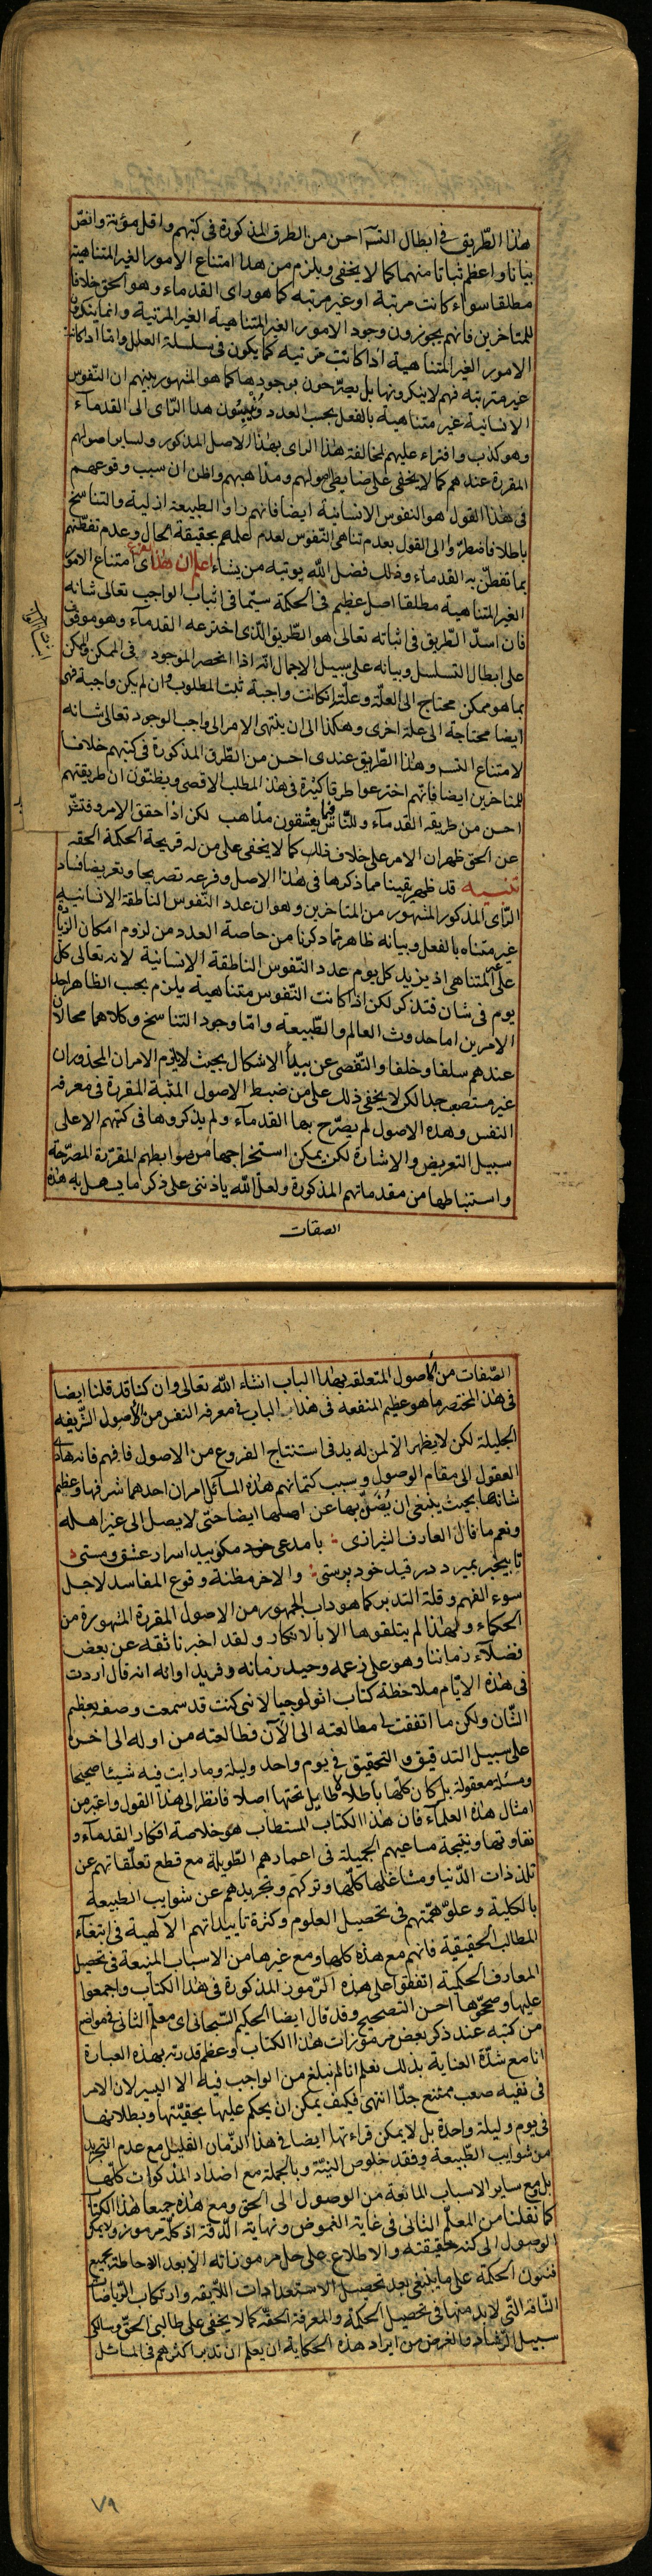 هذا الطريق فى ابطال التسـ احسن من الطرق المذكورة فى كتبهم واقل مؤنة وانقن
بيانا واعظم ثباتا منهما كما لا يخفى ويلزم من هذا امتناع الامور الغير المتناهية
مطلقا سواء كانت مرتبة او غير مرتبه كما هو راى القدماء وهو الحق خلافا
للمتاخرين فانهم يجوزون وجود الامور الغير المتناهية الغير المرتبة وانما ينكرون
الامور الغير المتناهية اذا كانت مرتبه كما يكون فى سلسلة العلل واما اذا كانت
غير مترتبه فهم لا ينكرونها بل يصرّحون بوجودها كما هو المشهور بينهم ان النفوس
الانسانية غير متناهية بالفعل بحسب العدد وينسبون هذا الراى الى القدمآء
وهو كذب وافتراء عليهم لمخالفة هذا الراى بهذا الاصل المذكور ولساير اصولهم
المقررة عندهم كما لا يخفى على من ضابط اصولهم ومذاهبهم واظن ان سبب وقوعهم
فى هذا القول هو النفوس الانسانية ايضا فانهم راوا الطبيعة ازلية والتناسخ
باطلا فاضطرّوا الى القول بعدم تناهى النفوس لعدم علمهم بحقيقة الحال وعدم تفطنهم
بما تفطّن به القدماء وذلك فضل الله يوتيه من يشاء اعلم ان هذا اى امتناع الامور
الغير المتناهية مطلقا اصل عظيم فى الحكمة سيّما فى اثبات الواجب تعالى شانه
فان اسدّ الطريق فى اثباته تعالى هو الطريق الذى اخترعه القدمآء وهو موقوف
على ابطال التسلسل وبيانه على سبيل الاجمال انه اذا انحصر الموجود فى الممكن والممكن
بما هو ممكن محتاج الى العلة وعلته ان كانت واجبة ثبت المطلوب وان لم يكن واجبة فهى
ايضا محتاجة الى علة اخرى وهكذا الى ان ينتهى الامر الى واجب الوجود تعالى شانه
لامتناع التسـ وهذا الطريق عندى احسن من الطرق المذكورة فى كتبهم خلافا
للمتاخرين ايضا فانهم اخترعوا طرقا كثيرة فى هذا المطلب الاقصى ويظنون ان طريقتهم
احسن من طريقه القدمآء وللناس فيما يعشقون مذاهب لكن اذا حقق الامر وفتش
عن الحق ظهر ان الامر على خلاف ذلك كما لا يخفى على من له قريحة الحكمة الحقه
تنبيه قد ظهر يقينا مما ذكرها فى هذا الاصل وفرعه تصريحا وتعريضا فساد
الراى المذكور المشهور من المتاخرين وهو ان عدد النفوس الناطقة الانسانية
غير متناه بالفعل وبيانه ظاهر مما ذكرنا من خاصة العدد من لزوم امكان الزيادة
على غير المتناهى اذ يزيد كل يوم عدد النفوس الناطقة الانسانية لانه تعالى كل
يوم فى شان فتذكر لكن اذا كانت النفوس متناهية يلزم بحسب الظاهر احد
الامرين اما حدوث العالم والطبيعة واما وجود التناسخ وكلاهما محالان
عندهم سلفا وخلفا والتفصى عن هذا الاشكال بحيث لا يلزم الامران المحذوران
غير مستصعب جدا لكن لا يخفى ذلك على من ضبط الاصول المثبتة المقررة فى معرفة
النفس وهذه الاصول لم يصرّح بها القدمآء ولم يذكروها فى كتبهم الا على
سبيل التعريض والاشارة لكن يمكن استخراجها من ضوابطهم المقررة المصرّحة
واستنباطها من مقدماتهم المذكورة ولعل الله ياذننى على ذكر ما يسهل به هذه
الصفات
الصّفات من الاصول المتعلقه بهذا الباب انشاء الله تعالى وان كنا قد قلنا ايضا
فى هذا المختصر ما هو عظيم المنفعه فى هذا الباب فى معرفه النفس من الاصول الشريفه
الجليلة لكن لا يظهر الا لمن له يد فى استنتاج الفروع من الاصول فافهم فانه هادى
العقول الى مقام الوصول وسبب كتمانهم هذه المسائل امران احدهما شرفها وعظيم
شانها بحيث ينبغى ان يُضَنّ بها عن اهلها ايضا حتى لا يصل الى غير اهله
ونعم ما قال العارف الشيرازى با مدعى مكوييد اسرار عشق ومستى
تا بيخبر بميرد در قيد خود پرستى والاخر مظنة وقوع المفاسد لاجل
سوء الفهم وقلة التدبر كما هو داب الجمهور من الاصول المقررة المشهورة من
الحكماء ولهذا لم يتلقوها الا بالانكار ولقد اخبرنا ثقه عن بعض
فضلآء زماننا وهو على زعمه وحيد زمانه وفريد اوانه انه قال اردت
فى هذه الايام ملاحظة كتاب اثولوجيا لانى كنت قد سمعت وصفه بعظيم
الشان ولكن ما اتفقت لى مطالعته الى الآن فطالعته من اوله الى اخره
على سبيل التدقيق والتحقيق فى يوم واحد وليلة وما رايت فيه شيئا صحيحا
ومسئلة معقولة بل كان كلها باطلا لا طايل تحتها اصلا فانظر الى هذا القول واعتبر من
امثال هذه العلمآء فان هذا الكتاب المستطاب هو خلاصة افكار القدمآء و
نقاوتها ونتيجة مساعيهم الجميلة فى اعمارهم الطويلة مع قطع تعلقاتهم عن
تلذذات الدّنيا ومشاغلها كلها وتركهم وتجريدهم عن شوايب الطبيعة
بالكلية وعلوّ همّتهم فى تحصيل العلوم وكثرة تاييداتهم الالهية فى ابتغآء
المطالب الحقيقية فانهم مع هذه كلها ومع غيرها من الاسباب المنبعة فى تحصيل
المعارف الحكمية اتفقوا على هذه الرّموز المذكورة فى هذا الكتاب واجمعوا
عليها وصححوها احسن التصحيح وقد قال ايضا الحكيم السّبحانى اى معلم الثانى فى مواضع
من كتبه عند ذكر بعض مرموزات هذا الكتاب وعظم قدرته بهذه العبارة
انا مع شدّة العناية بذلك نعلم انا لم نبلغ من الواجب فيه الا اليسير لان الامر
فى نفسه صعب ممتنع جدّا انتهى فكيف يمكن ان يحكم عليها بحقيّتها وبطلانها
فى يوم وليلة واحدة بل لا يمكن قراءتها ايضا فى هذا الزمان القليل مع عدم التجريد
من شوايب الطّبيعة وفقد خلوص النيّة وبالجملة مع اضداد المذكورات كلها
بل مع ساير الاسباب المانعة من الوصول الى الحق ومع هذه جميعا هذا الكتاب
كما نقلنا من المعلّم الثانى فى غاية الغموض ونهاية الدّقة اذ كلّه مرموز ولا يمكن
الوصول الى كنه حقيقته والاطلاع على حل مرموزاته الا بعد الاحاطة بجميع
فنون الحكمة على ما ينبغى بعد تحصيل الاستعدادات اللايقه وارتكاب الرّياضات
الشاقة التى لا بد منها فى تحصيل الحكمة والمعرفة الحقّه كما لا يخفى على طالبى الحقّ وسالكى
سبيل الرّشاد والغرض من ايراد هذه الحكاية ان يعلم ان تدبّر اكثرهم فى المسائل
٧٩